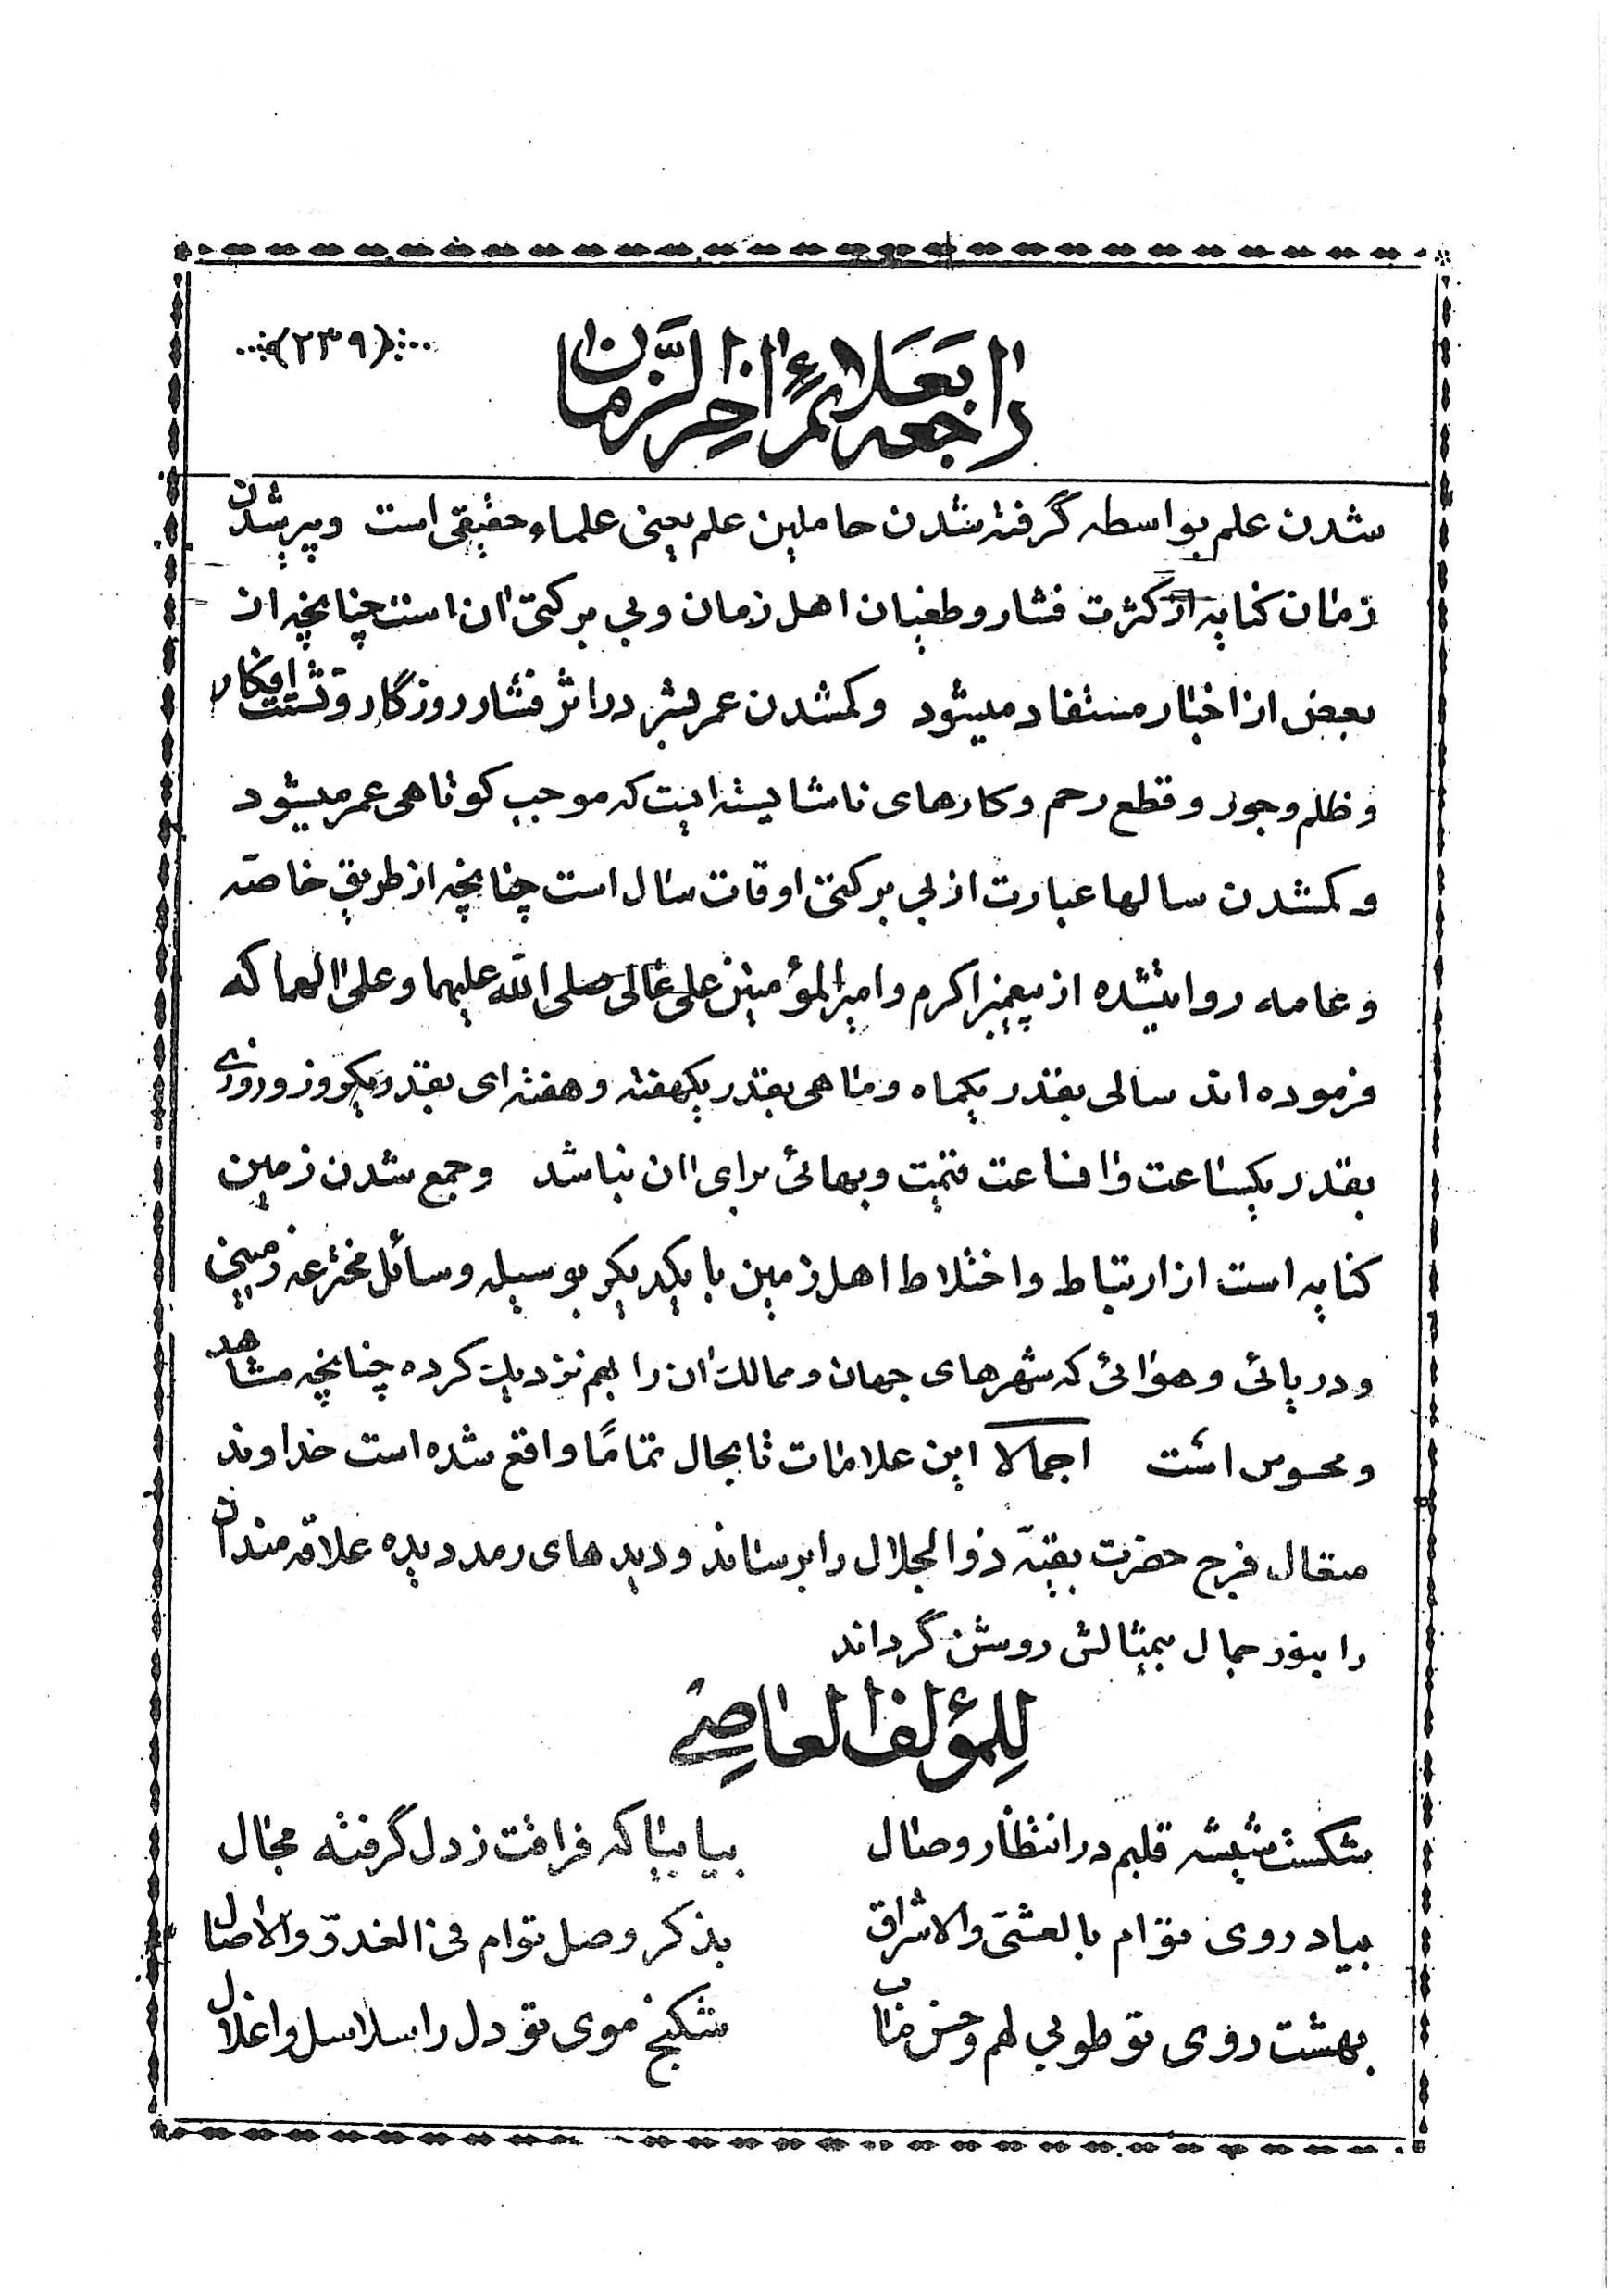 (۲۳۹)
راجعه بعلائم اخر الزَّمان
شدن علم بواسطه گرفته شدن حاملین علم یعنی علماء حقیقی است وپیر شدن
زمان کنایه از کثرت فشار و طغیان اهل زمان و بی برکتی ان است چنانچه از
بعض از اخبار مستفاد میشود و کمشدن عمر بشر در اثر فشار روزگار و تشتت افکار
و ظلم و جور و قطع رحم و کارهای ناشایسته ایت که موجب کوتاهی عمر میشود
و کمشدن سالها عبارت از بی برکتی اوقات سال است چنانچه از طریق خاصه
و عامه روایتشده از پیغمبر اکرم و امیرالمؤمنین علی عالی صلی الله علیهما و علی الهما که
فرموده اند سالی بقدر یکماه و ماهی بقدر یکهفته و هفته ای بقدر یکروز و روزی
بقدر یکساعت و انساعت قیمت و بهائی برای ان نباشد وجمع شدن زمین
کنایه است از ارتباط و اختلاط اهل زمین با یکدیگر بوسیله وسائل مخترعه زمینی
و دریائی و هوائی که شهرهای جهان و ممالک ان را بهم نزدیک کرده چنانچه مشاهد
و محسوس است اجمالا این علامات تا بحال تمامًا واقع شده است خداوند
متعال فرج حضرت بقیّه ذوالجلال را برساند و دیدهای رمد دیده علاقه مندان
را بنور جمال بیمثالش روشن گرداند
لِلمؤلف العاصِی
شکست شیشه قلبم در انتظار وصال بیا بیا که فراقت ز دل گرفته مجال
بیاد روی تو ام بالعشیّ والاشراق بذکر وصل توام فی الغدوّ والاصال
بهشت روی تو طوبی لهم وحسن مآب شکنج موی تو دل را سلاسل و اغلال